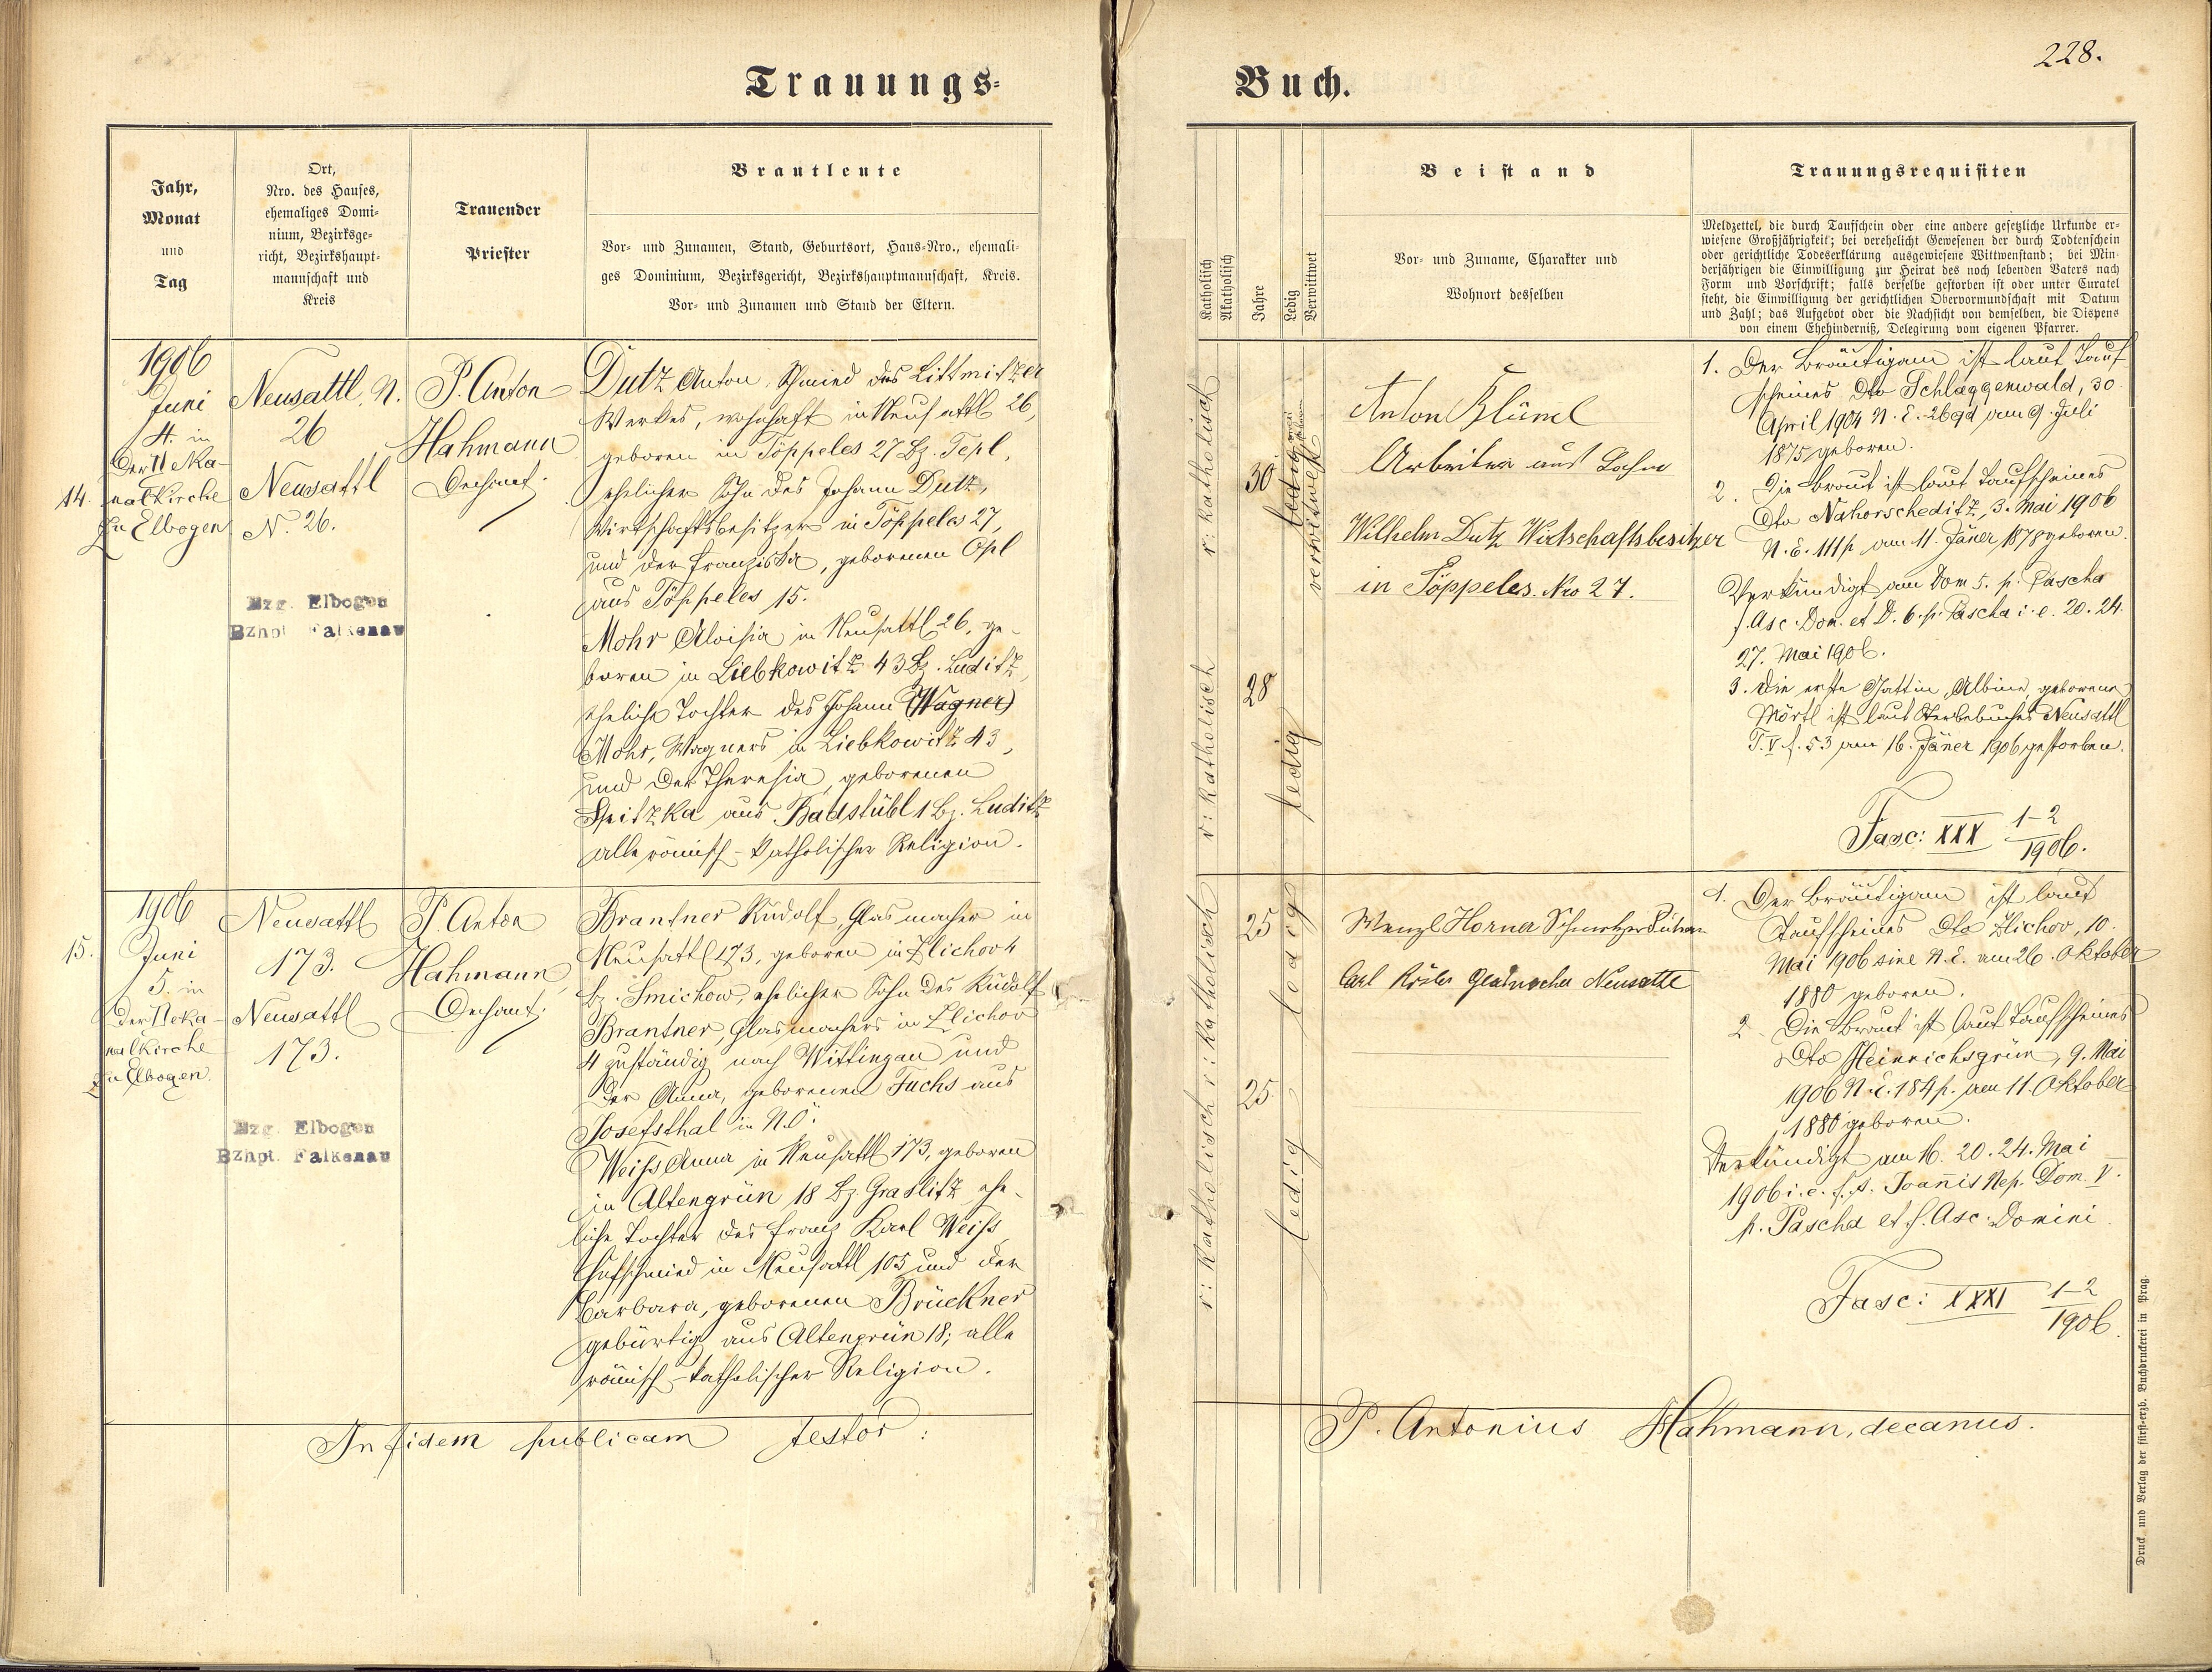 228.
Trauungs-
Buch.
Jahr,
Monat
und
Tag
Ort,
Nro. des Hauses,
ehemaliges Domi-
nium, Bezirksge-
richt, Bezirkshaupt-
mannschaft und
Kreis
Trauender
Priester
Brautleute
Vor- und Zunamen, Stand, Geburtsort, Haus-Nro., ehemali-
ges Dominium, Bezirksgericht, Bezirkshauptmannschaft, Kreis.
Vor- und Zunamen und Stand der Eltern.
Katholisch
Akatholisch
Jahre
Ledig
Verwittwet
Beistand
Vor- und Zuname, Charakter und
Wohnort desselben
Trauungsrequisiten
Meldzettel, die durch Taufschein oder eine andere gesetzliche Urkunde er-
wiesene Großjährigkeit; bei verehelicht Gewesenen der durch Todtenschein
oder gerichtliche Todeserklärung ausgewiesene Wittwenstand; bei Min-
derjährigen die Einwilligung zur Heirat des noch lebenden Vaters nach
Form und Vorschrift; falls derselbe gestorben ist oder unter Curatel
steht, die Einwilligung der gerichtlichen Obervormundschaft mit Datum
und Zahl; das Aufgebot oder die Nachsicht von demselben, die Dispens
von einem Ehehinderniß, Delegirung vom eigenen Pfarrer.
14.
1906
Juni
4. in
der Deka-
nalkirche
zu Elbogen
Neusattl N.
26
Neusattl
N. 26.
Bzg. Elbogen
Bzhpt. Falkenau
P. Anton
Hahmann
Dechant.
Dutz Anton, Schmied des Littmitzer
Werkes, wohnhaft in Neusattl 26,
geboren in Töppeles 27 Bz. Tepl,
ehelicher Sohn des Johann Dutz,
Wirtschaftsbesitzers in Töppeles 27,
und der Franziska, geborenen Opl
aus Töppeles 15.
Mohr Aloisia in Neusattl 26, ge-
boren in Liebkowitz 43 Bz. Luditz,
eheliche Tochter des Johann (Wagner)
Mohr, Wagners in Liebkowitz 43,
und der Theresia, geborenen
Spitzka aus Badstübl 1 Bz. Luditz
alle römisch-katholischer Religion.
r: katholisch
30
verwitwet
r: katholisch
28
ledig
Anton Blüml
Arbeiter aus
Wilhelm Dutz Wirtschaftsbesitzer
in Töppeles Nro 27.
1. Der Bräutigam ist laut Tauf-
scheines dto Schlaggenwald, 30.
April 1904 N. E. 269d am 9. Juli
1875 geboren.
2. Die Braut ist laut Taufscheines
dto Nahorscheditz, 3. Mai 1906
N. E. 111p am 11. Jäner 1878 geboren.
Verkündigt am Dom 5. p. Pascha
f. Asc. Dom. et D. 6. p. Pascha i. e. 20. 24.
27. Mai 1906.
3. Die erste Gattin, Albine, geborene
Mörtl ist laut Sterbebuches Neusattl
T. V. f. 53 am 16. Jäner 1906 gestorben.
Fasc: XXX 1-2
1906.
15.
1906
Juni
5. in
der Deka-
nalkirche
zu Elbogen.
Neusattl
173.
Neusattl
173.
Bzg. Elbogen
Bzhpt. Falkenau
P. Anton
Hahmann,
Dechant.
Brantner Rudolf, Glasmacher in
Neusattl 173, geboren in Zlichov 4
Bz. Smichow, ehelicher Sohn des Rudolf
Brantner, Glasmachers in Zlichov
4 zuständig nach Wittingau und
der Anna, geborenen Fuchs aus
Josefsthal in N.Ö.
Weiss Anna in Neusattl 173, geboren
in Altengrün 18 Bz. Graslitz ehe-
liche Tochter des Franz Karl Weiss
Hufschmied in Neusattl 105 und der
Barbara, geborenen Brückner
gebürtig aus Altengrün 18; alle
römisch-katholischer Religion.
r: katholisch
25
ledig
r: katholisch
25.
ledig
Wenzl Horner
Carl Rösler Glasmacher Neusattl
1. Der Bräutigam ist laut
Taufscheines dto Zlichov, 10.
Mai 1906 sine N. E. am 26. Oktober
1880 geboren.
2. Die Braut ist laut Taufscheines
dto Heinrichsgrün, 9. Mai
1906 N. E. 184p. am 11. Oktober
1880 geboren.
Verkündigt am 16. 20. 24. Mai
1906 i. e. f. s. Joannis Nep. Dom. V.
p. Pascha et f. Asc. Domini.
Fasc: XXXI 1-2
1906.
In fidem publicam testor:
P. Antonius Hahmann, decanus.
Druck und Verlag der fürst-erzb. Buchdruckerei in Prag.